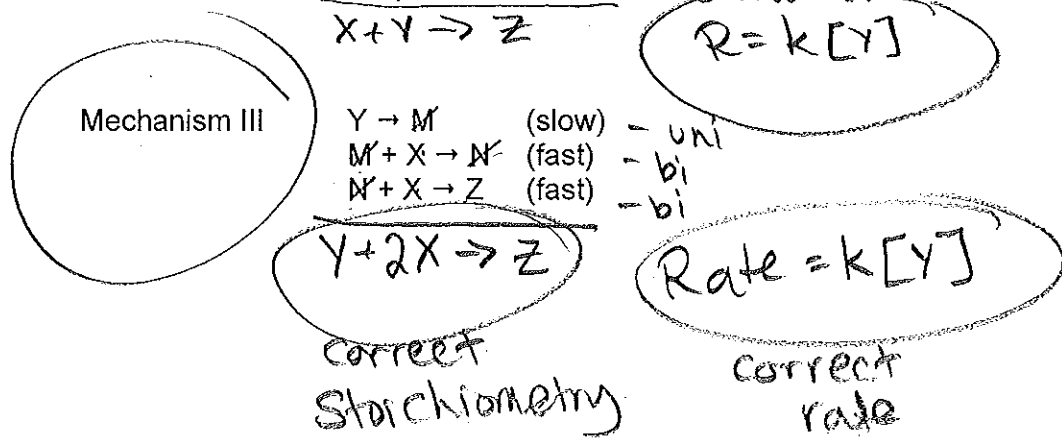 X + Y → Z
R = k [Y]
Mechanism III
Y → M (slow) - uni
M + X → N (fast) - bi
N + X → Z (fast) - bi
Y + 2X → Z
Rate = k [Y]
correct
stoichiometry
correct
rate